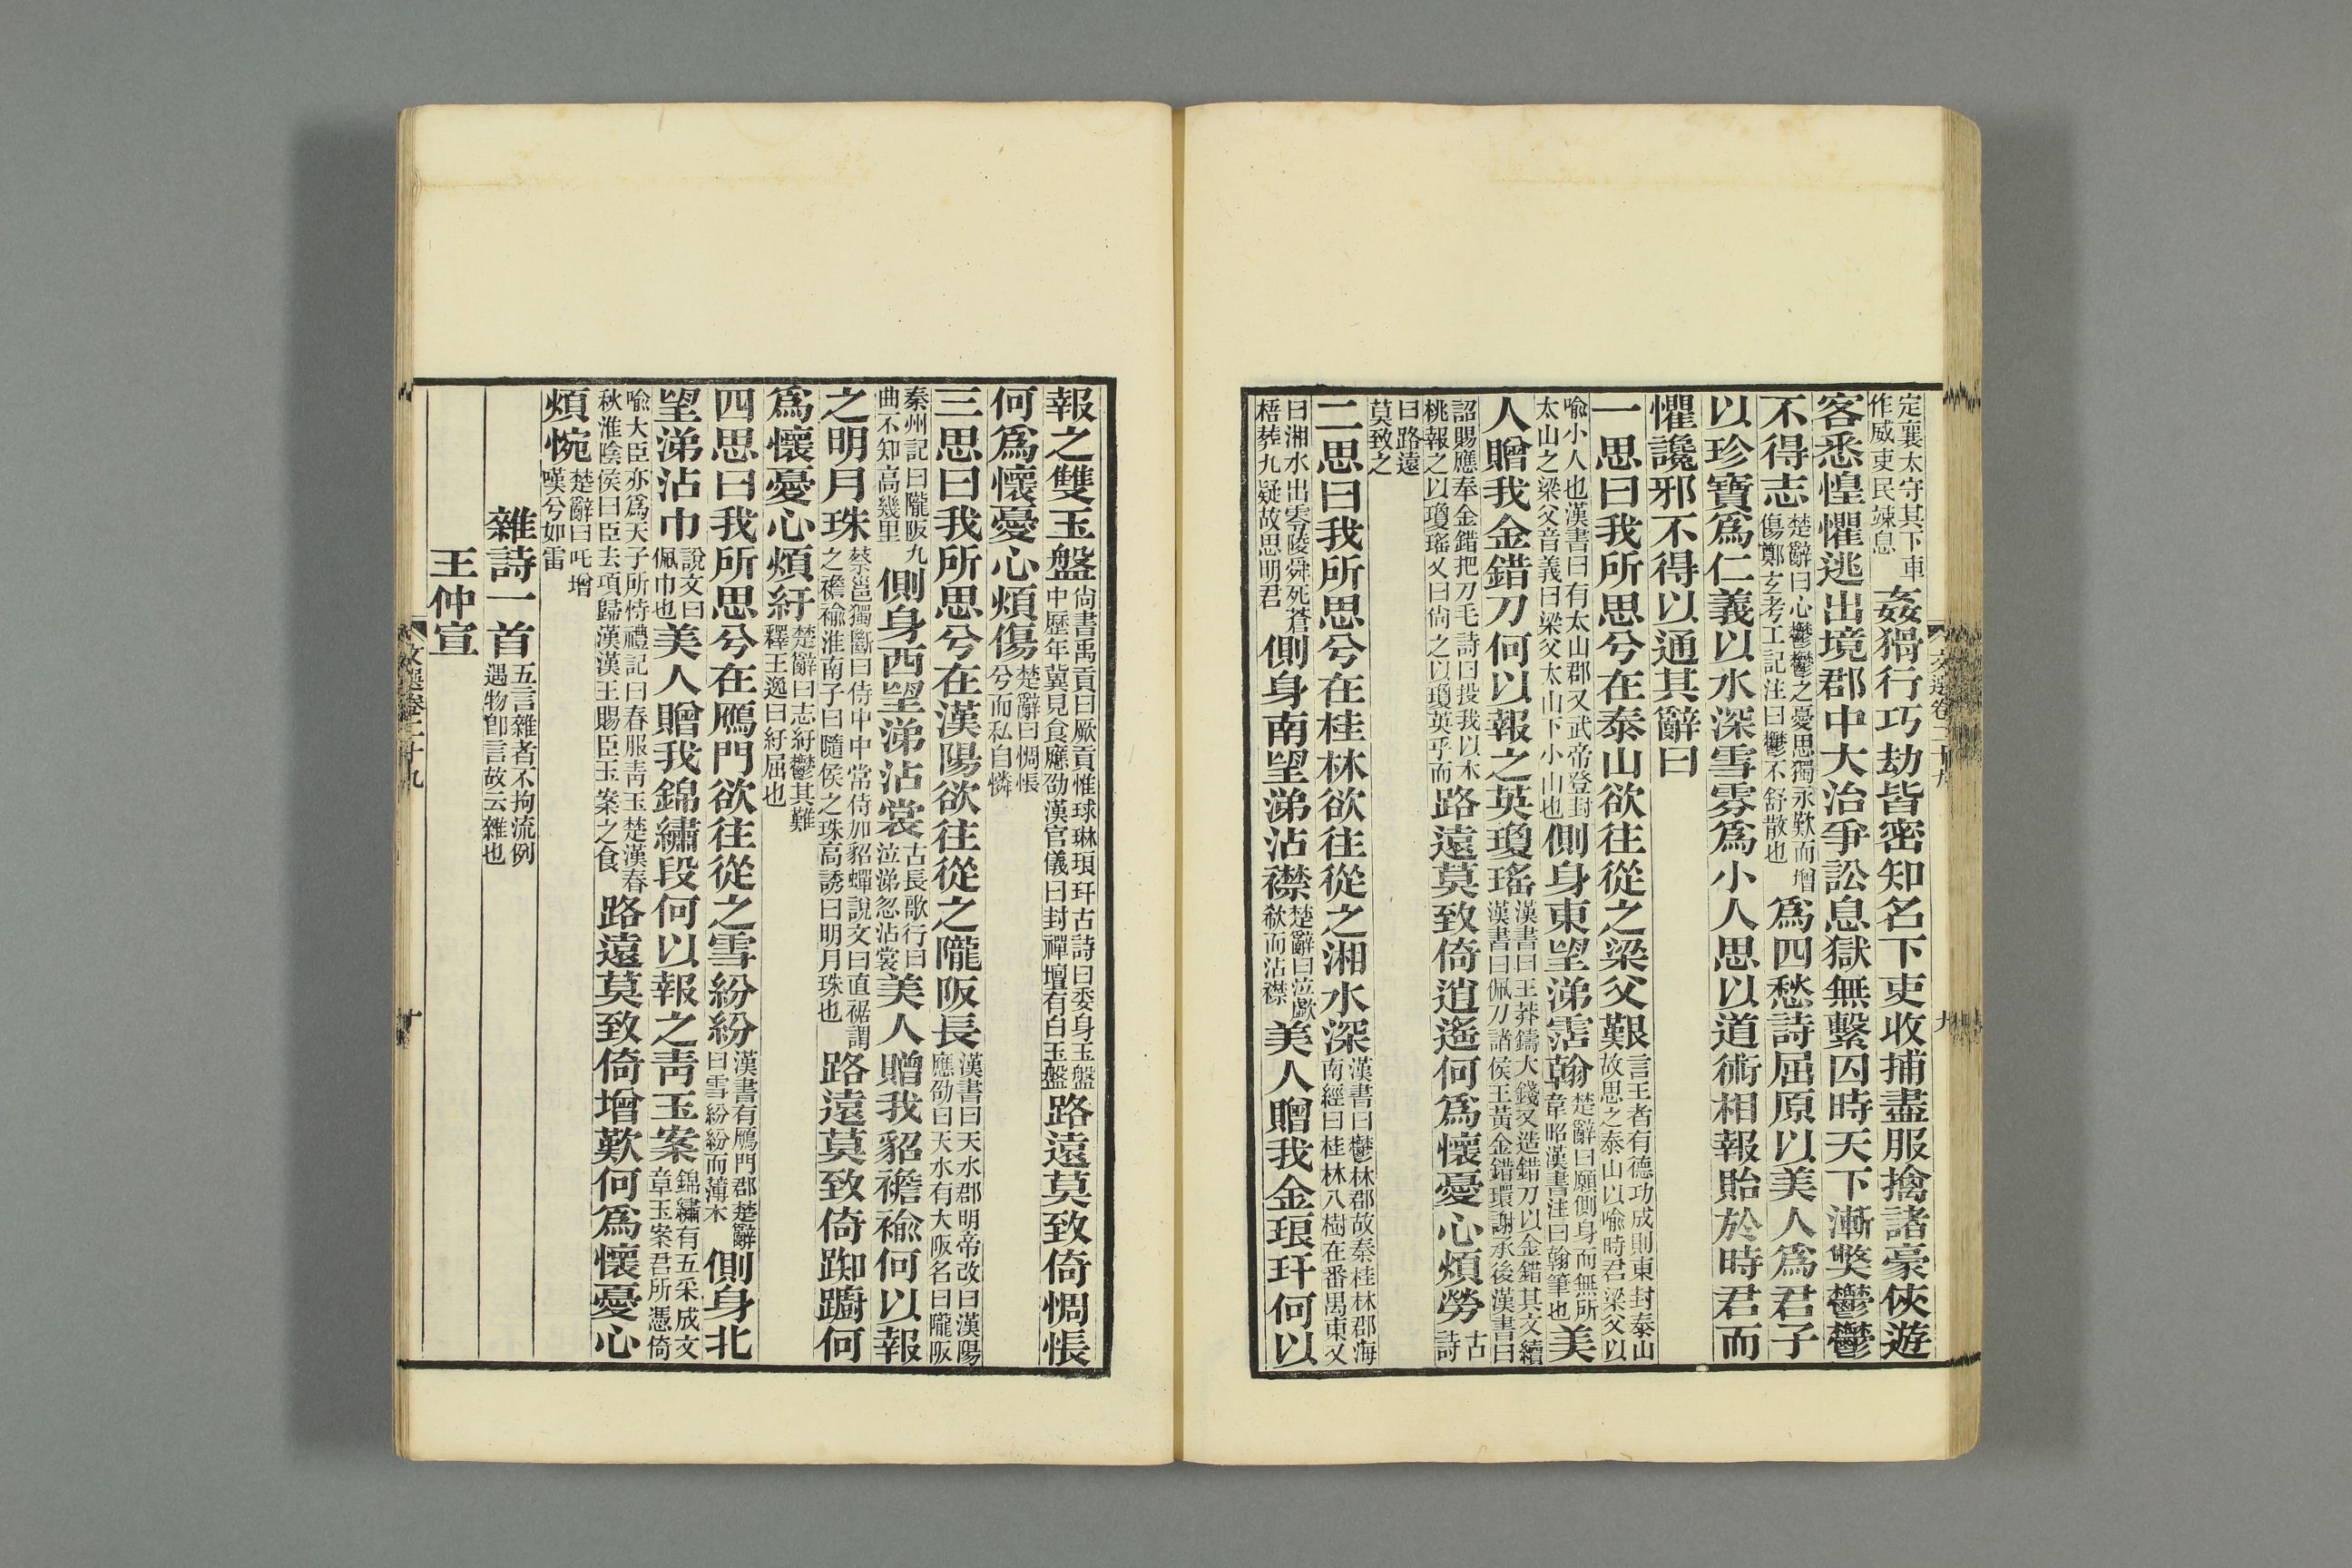 定襄太守其下車作威吏民竦息姦猾行巧劫皆密知名下吏收捕盡服擒諸豪俠遊
客悉惶懼逃出境郡中大治爭訟息獄無繫囚時天下漸獘鬱鬱
不得志楚辭曰心鬱鬱之憂思獨永歎而增傷鄭玄考工記注曰鬱不舒散也爲四愁詩屈原以美人爲君子
以珍寶爲仁義以水深雪雰爲小人思以道術相報貽於時君而
懼讒邪不得以通其辭曰
一思曰我所思兮在泰山欲往從之梁父艱言王者有德功成則東封泰山故思之泰山以喻時君梁父以
喻小人也漢書曰有太山郡又武帝登封太山之梁父音義曰梁父太山下小山也側身東望涕霑翰楚辭曰願側身而無所韋昭漢書注曰翰筆也美
人贈我金錯刀何以報之英瓊瑤漢書曰王莽鑄大錢又造錯刀以金錯其文續漢書曰佩刀諸侯王黃金錯環謝承後漢書曰
詔賜應奉金錯把刀毛詩曰投我以木桃報之以瓊瑤又曰尚之以瓊英乎而路遠莫致倚逍遙何爲懷憂心煩勞古詩
曰路遠莫致之
二思曰我所思兮在桂林欲往從之湘水深漢書曰鬱林郡故秦桂林郡海南經曰桂林八樹在番禺東又
曰湘水出零陵舜死蒼梧葬九疑故思明君側身南望涕沾襟楚辭曰泣歔欷而沾襟美人贈我金琅玕何以
文選卷二十九
九
報之雙玉盤尚書禹貢曰厥貢惟球琳琅玕古詩曰委身玉盤中歷年冀見食應劭漢官儀曰封禪壇有白玉盤路遠莫致倚惆悵
何爲懷憂心煩傷楚辭曰惆悵兮而私自憐
三思曰我所思兮在漢陽欲往從之隴阪長漢書曰天水郡明帝改曰漢陽應劭曰天水有大阪名曰隴阪
秦州記曰隴阪九曲不知高幾里側身西望涕沾裳古長歌行曰泣涕忽沾裳美人贈我貂襜褕何以報
之明月珠蔡邕獨斷曰侍中中常侍加貂蟬說文曰直裾謂之襜褕淮南子曰隨侯之珠高誘曰明月珠也路遠莫致倚踟躕何
爲懷憂心煩紆楚辭曰志紆鬱其難釋王逸曰紆屈也
四思曰我所思兮在鴈門欲往從之雪紛紛漢書有鴈門郡楚辭曰雪紛紛而薄木側身北
望涕沾巾說文曰佩巾也美人贈我錦繡段何以報之青玉案錦繡有五采成文章玉案君所憑倚
喻大臣亦爲天子所恃禮記曰春服青玉楚漢春秋淮陰侯曰臣去項歸漢漢王賜臣玉案之食路遠莫致倚增歎何爲懷憂心
煩惋楚辭曰吒增嘆兮如雷
雜詩一首五言雜者不拘流例遇物卽言故云雜也
王仲宣
文選卷二十九
十